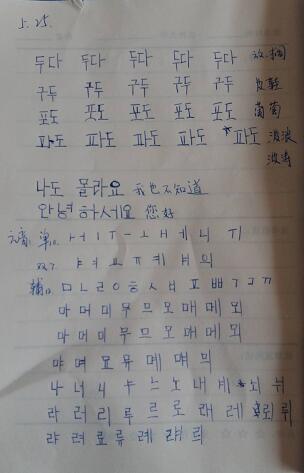 5.25.
두다 두다 두다 두다 두다 放.搁
구두 구두 구두 구두 구두 皮鞋
포도 포도 포도 포도 포도 葡萄
파도 파도 파도 파도 파도 波浪
波涛
나도 몰라요 我也不知道
안녕하세요 您好
元音 单
双
辅
마 머 미 무 므 모 매 메 뫼
마 머 미 무 므 모 매 메 뫼
먀 며 묘 뮤 몌 먜 믜
나 너 니 누 느 노 내 네 뇌 뉘
라 러 리 루 르 로 래 레 뢰 뤼
랴 려 료 류 례 럐 릐